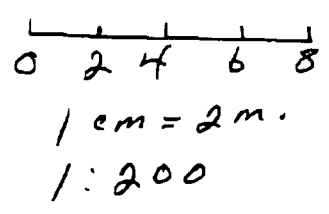 0 2 4 6 8
1 cm = 2 m.
1 : 200